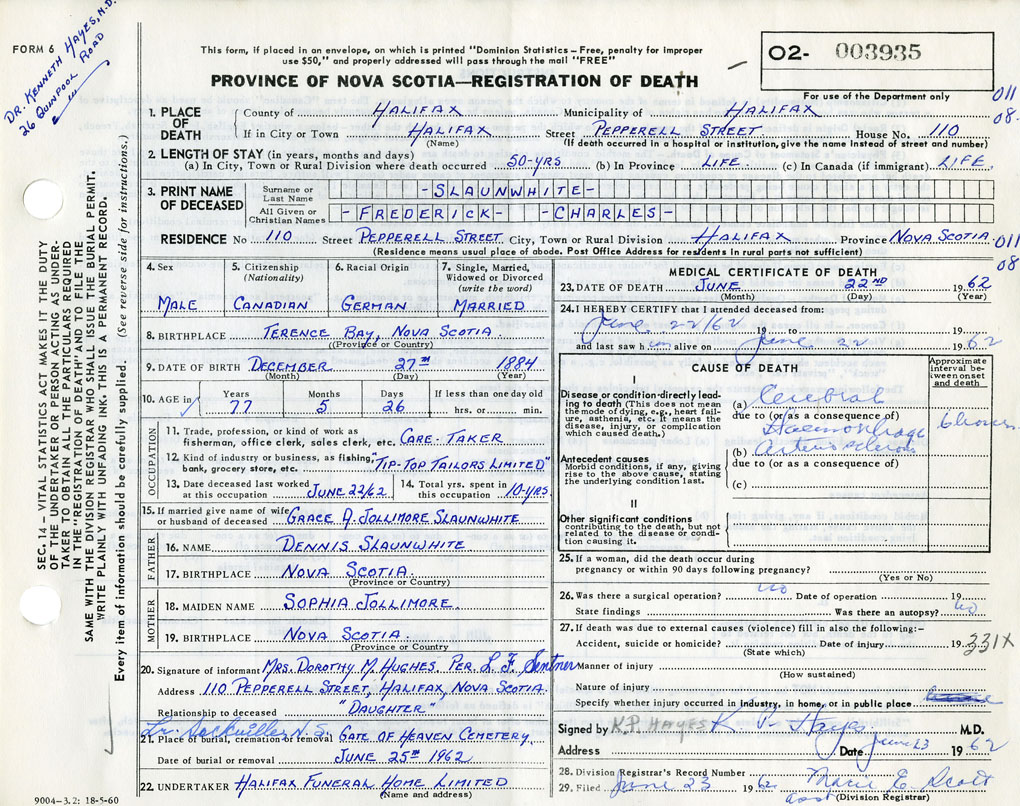 DR. KENNETH HAYES, M.D.
26 QUINPOOL ROAD
FORM 6
This form, if placed in an envelope, on which is printed "Dominion Statistics – Free, penalty for improper
use $50," and properly addressed will pass through the mail "FREE"
O2- 003935
For use of the Department only
PROVINCE OF NOVA SCOTIA—REGISTRATION OF DEATH
011
08
1. PLACE OF DEATH County of HALIFAX Municipality of HALIFAX
If in City or Town HALIFAX Street PEPPERELL STREET House No. 110
(Name) (If death occurred in a hospital or institution, give the name instead of street and number)
2. LENGTH OF STAY (in years, months and days)
(a) In City, Town or Rural Division where death occurred 50-YRS (b) In Province LIFE. (c) In Canada (if immigrant) LIFE.
3. PRINT NAME OF DECEASED Surname or Last Name -SLAUNWHITE-
All Given or Christian Names -FREDERICK- -CHARLES-
RESIDENCE No 110 Street PEPPERELL STREET City, Town or Rural Division HALIFAX Province NOVA SCOTIA
(Residence means usual place of abode. Post Office Address for residents in rural parts not sufficient)
011
08
4. Sex MALE
5. Citizenship (Nationality) CANADIAN
6. Racial Origin GERMAN
7. Single, Married, Widowed or Divorced (write the word) MARRIED
8. BIRTHPLACE TERENCE BAY, NOVA SCOTIA
(Province or Country)
9. DATE OF BIRTH DECEMBER 27TH 1884
(Month) (Day) (Year)
10. AGE in Years 77 Months 5 Days 26 If less than one day old hrs. or min.
OCCUPATION
11. Trade, profession, or kind of work as
fisherman, office clerk, sales clerk, etc. CARE-TAKER
12. Kind of industry or business, as fishing,
bank, grocery store, etc. "TIP-TOP TAILORS LIMITED"
13. Date deceased last worked
at this occupation JUNE 22/62
14. Total yrs. spent in
this occupation 10-YRS
15. If married give name of wife
or husband of deceased GRACE A. JOLLIMORE SLAUNWHITE
FATHER
16. NAME DENNIS SLAUNWHITE
17. BIRTHPLACE NOVA SCOTIA.
(Province or Country)
MOTHER
18. MAIDEN NAME SOPHIA JOLLIMORE.
19. BIRTHPLACE NOVA SCOTIA.
(Province or Country
20. Signature of informant MRS. DOROTHY M. HUGHES. PER. L. F. Sentner
Address 110 PEPPERELL STREET, HALIFAX, NOVA SCOTIA.
Relationship to deceased "DAUGHTER"
Lr. Sackville N.S.
21. Place of burial, cremation or removal GATE OF HEAVEN CEMETERY,
Date of burial or removal JUNE 25TH 1962
22. UNDERTAKER HALIFAX FUNERAL HOME LIMITED
(Name and address)
MEDICAL CERTIFICATE OF DEATH
23. DATE OF DEATH JUNE 22ND 1962
(Month) (Day) (Year)
24. I HEREBY CERTIFY that I attended deceased from:
June 22/62 19 to 19
and last saw him alive on June 22 1962
CAUSE OF DEATH
Approximate interval between onset and death
I
Disease or condition directly leading to death (This does not mean the mode of dying, e.g., heart failure, asthenia, etc. It means the disease, injury, or complication which caused death.)
(a) Cerebral
due to (or as a consequence of)
Haemorrhage 6 hours
(b) Arteriosclerosis
due to (or as a consequence of)
(c)
Antecedent causes
Morbid conditions, if any, giving rise to the above cause, stating the underlying condition last.
II
Other significant conditions
contributing to the death, but not related to the disease or condition causing it.
25. If a woman, did the death occur during
pregnancy or within 90 days following pregnancy?
(Yes or No)
26. Was there a surgical operation? no Date of operation 19
State findings Was there an autopsy? no
27. If death was due to external causes (violence) fill in also the following:-
Accident, suicide or homicide? Date of injury 19 331X
(State which)
Manner of injury
(How sustained)
Nature of injury
Specify whether injury occurred in industry, in home, or in public place
Signed by K.P. HAYES K P Hayes M.D.
Address Date June 23 1962
28. Division Registrar's Record Number
29. Filed June 23 1962 Marie E. Scott
asst (Division Registrar)
SEC. 14 – VITAL STATISTICS ACT MAKES IT THE DUTY
OF THE UNDERTAKER OR PERSON ACTING AS UNDER-
TAKER TO OBTAIN ALL THE PARTICULARS REQUIRED
IN THE "REGISTRATION OF DEATH" AND TO FILE THE
SAME WITH THE DIVISION REGISTRAR WHO SHALL ISSUE THE BURIAL PERMIT.
WRITE PLAINLY WITH UNFADING INK. THIS IS A PERMANENT RECORD.
Every item of information should be carefully supplied. (See reverse side for instructions.)
9004-3.2: 18-5-60